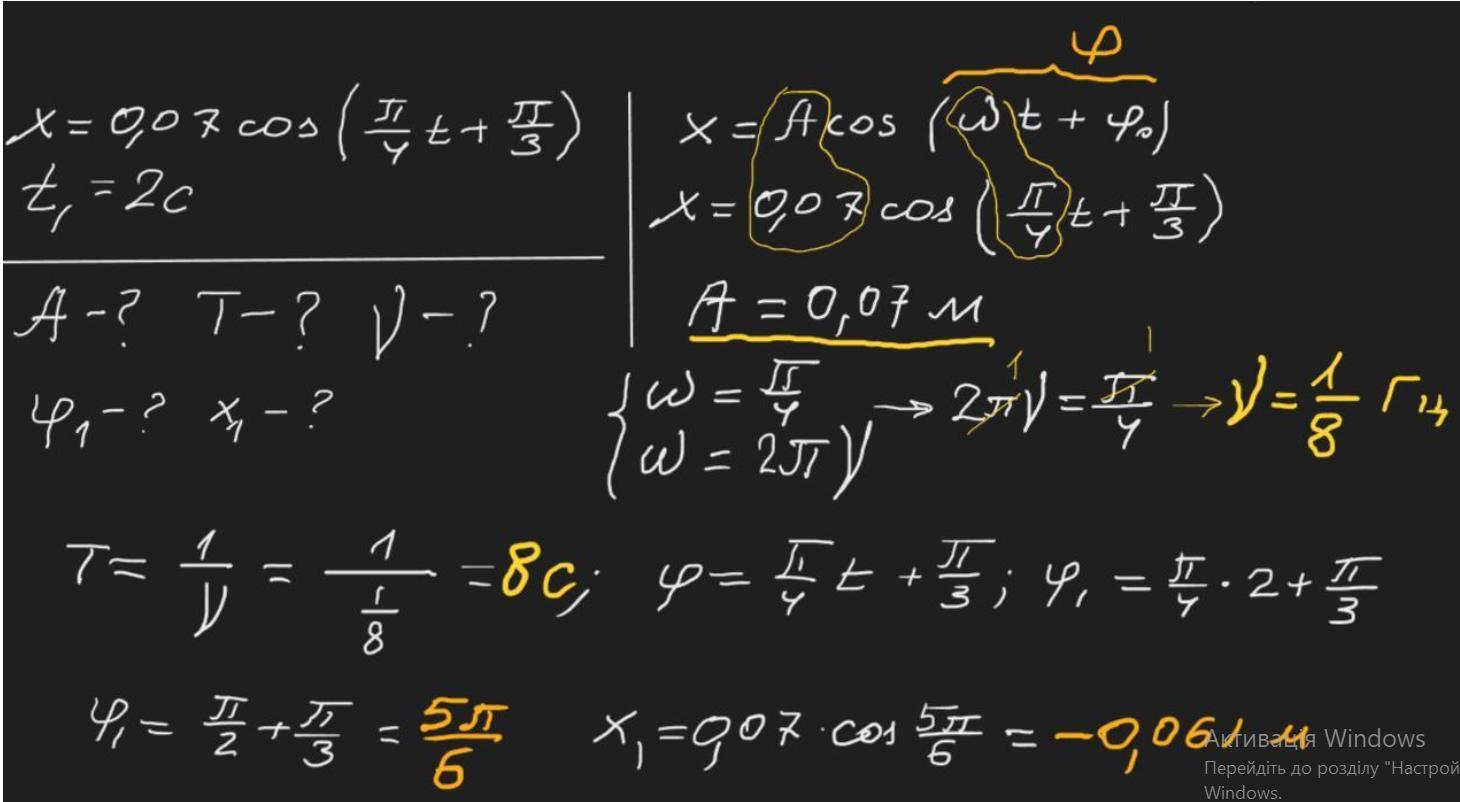 x = 0,07 cos (π/4 t + π/3)
t₁ = 2c
A - ? T - ? ν - ?
φ₁ - ? x₁ - ?
φ
x = A cos (ω t + φ₀)
x = 0,07 cos (π/4 t + π/3)
A = 0,07 м
{ ω = π/4
ω = 2πν
→ 2πν = π/4 → ν = 1/8 Гц
1 1
T = 1/ν = 1/(1/8) = 8c; φ = π/4 t + π/3; φ₁ = π/4 · 2 + π/3
φ₁ = π/2 + π/3 = 5π/6 x₁ = 0,07 · cos 5π/6 = -0,061 м
Активація Windows
Перейдіть до розділу "Настрой
Windows.